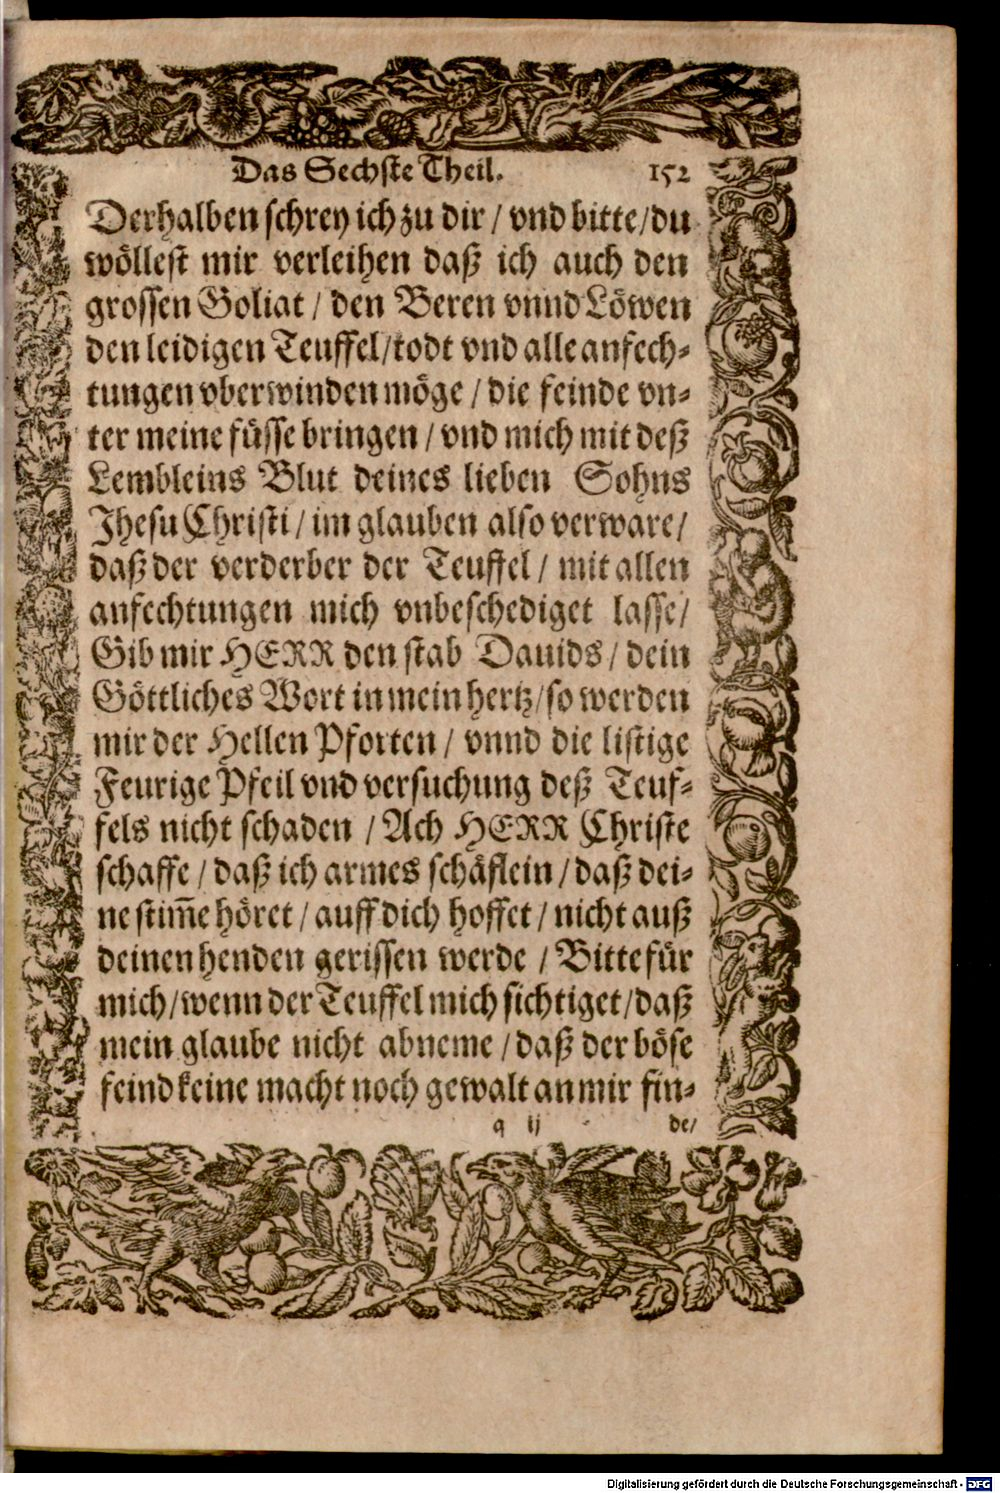 Das Sechste Theil. 152
Derhalben schrey ich zu dir / vnd bitte/du
wöllest mir verleihen daß ich auch den
grossen Goliat / den Beren vnnd Löwen
den leidigen Teuffel/todt vnd alle anfech-
tungen vberwinden möge / die feinde vn-
ter meine füsse bringen / vnd mich mit deß
Lembleins Blut deines lieben Sohns
Jhesu Christi / im glauben also verware/
daß der verderber der Teuffel / mit allen
anfechtungen mich vnbeschediget lasse/
Gib mir HERR den stab Dauids / dein
Göttliches Wort in mein hertz/so werden
mir der Hellen Pforten / vnnd die listige
Feurige Pfeil vnd versuchung deß Teuf-
fels nicht schaden / Ach HERR Christe
schaffe / daß ich armes schäflein / daß dei-
ne stim̃e höret / auff dich hoffet / nicht auß
deinen henden gerissen werde / Bitte für
mich/wenn der Teuffel mich sichtiget/daß
mein glaube nicht abneme / daß der böse
feind keine macht noch gewalt an mir fin-
q ij de/
Digitalisierung gefördert durch die Deutsche Forschungsgemeinschaft - DFG